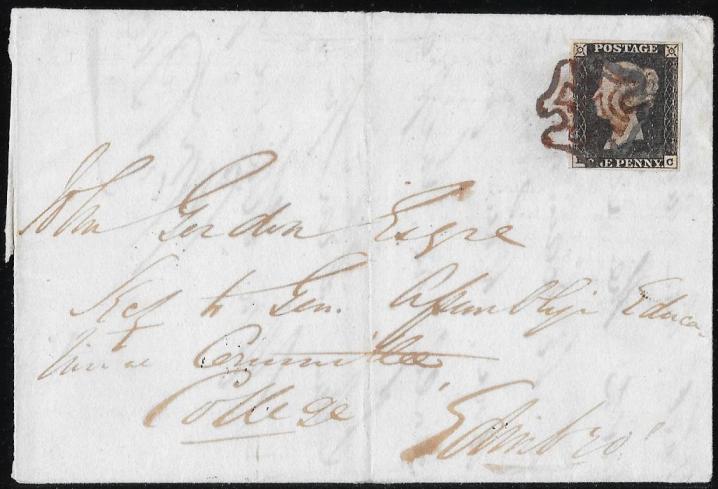 POSTAGE
C
NE PENNY
John Gordon Esqre
Secy to Gen. Assembly's Educa
tional Committee
College
Edinbro'